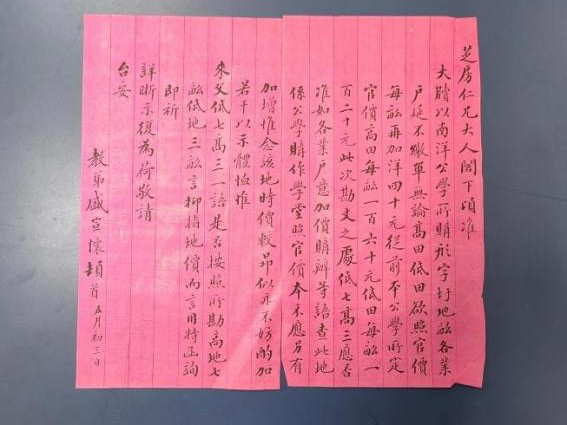 芝房仁兄大人閣下頃准
大牘以南洋公學所購形字圩地畝各業
戶延不繳單無論高田低田欲照官價
每畝再加洋四十元從前本公學所定
官價高田每畝一百六十元低田每畝一
百二十元此次勘丈之處低七高三應否
准如各業戶意加價購辦等語查此地
係公學購作學堂照官價本不應另有
加增惟念該地時價較昂似亦不妨酌加
若干以示體恤惟
來文低七高三一語是否按照所勘高地七
畝低地三畝言抑指地價而言用特函詢
即祈
詳晰示復為荷敬請
台安
教弟盛宣懷頓首五月初三日